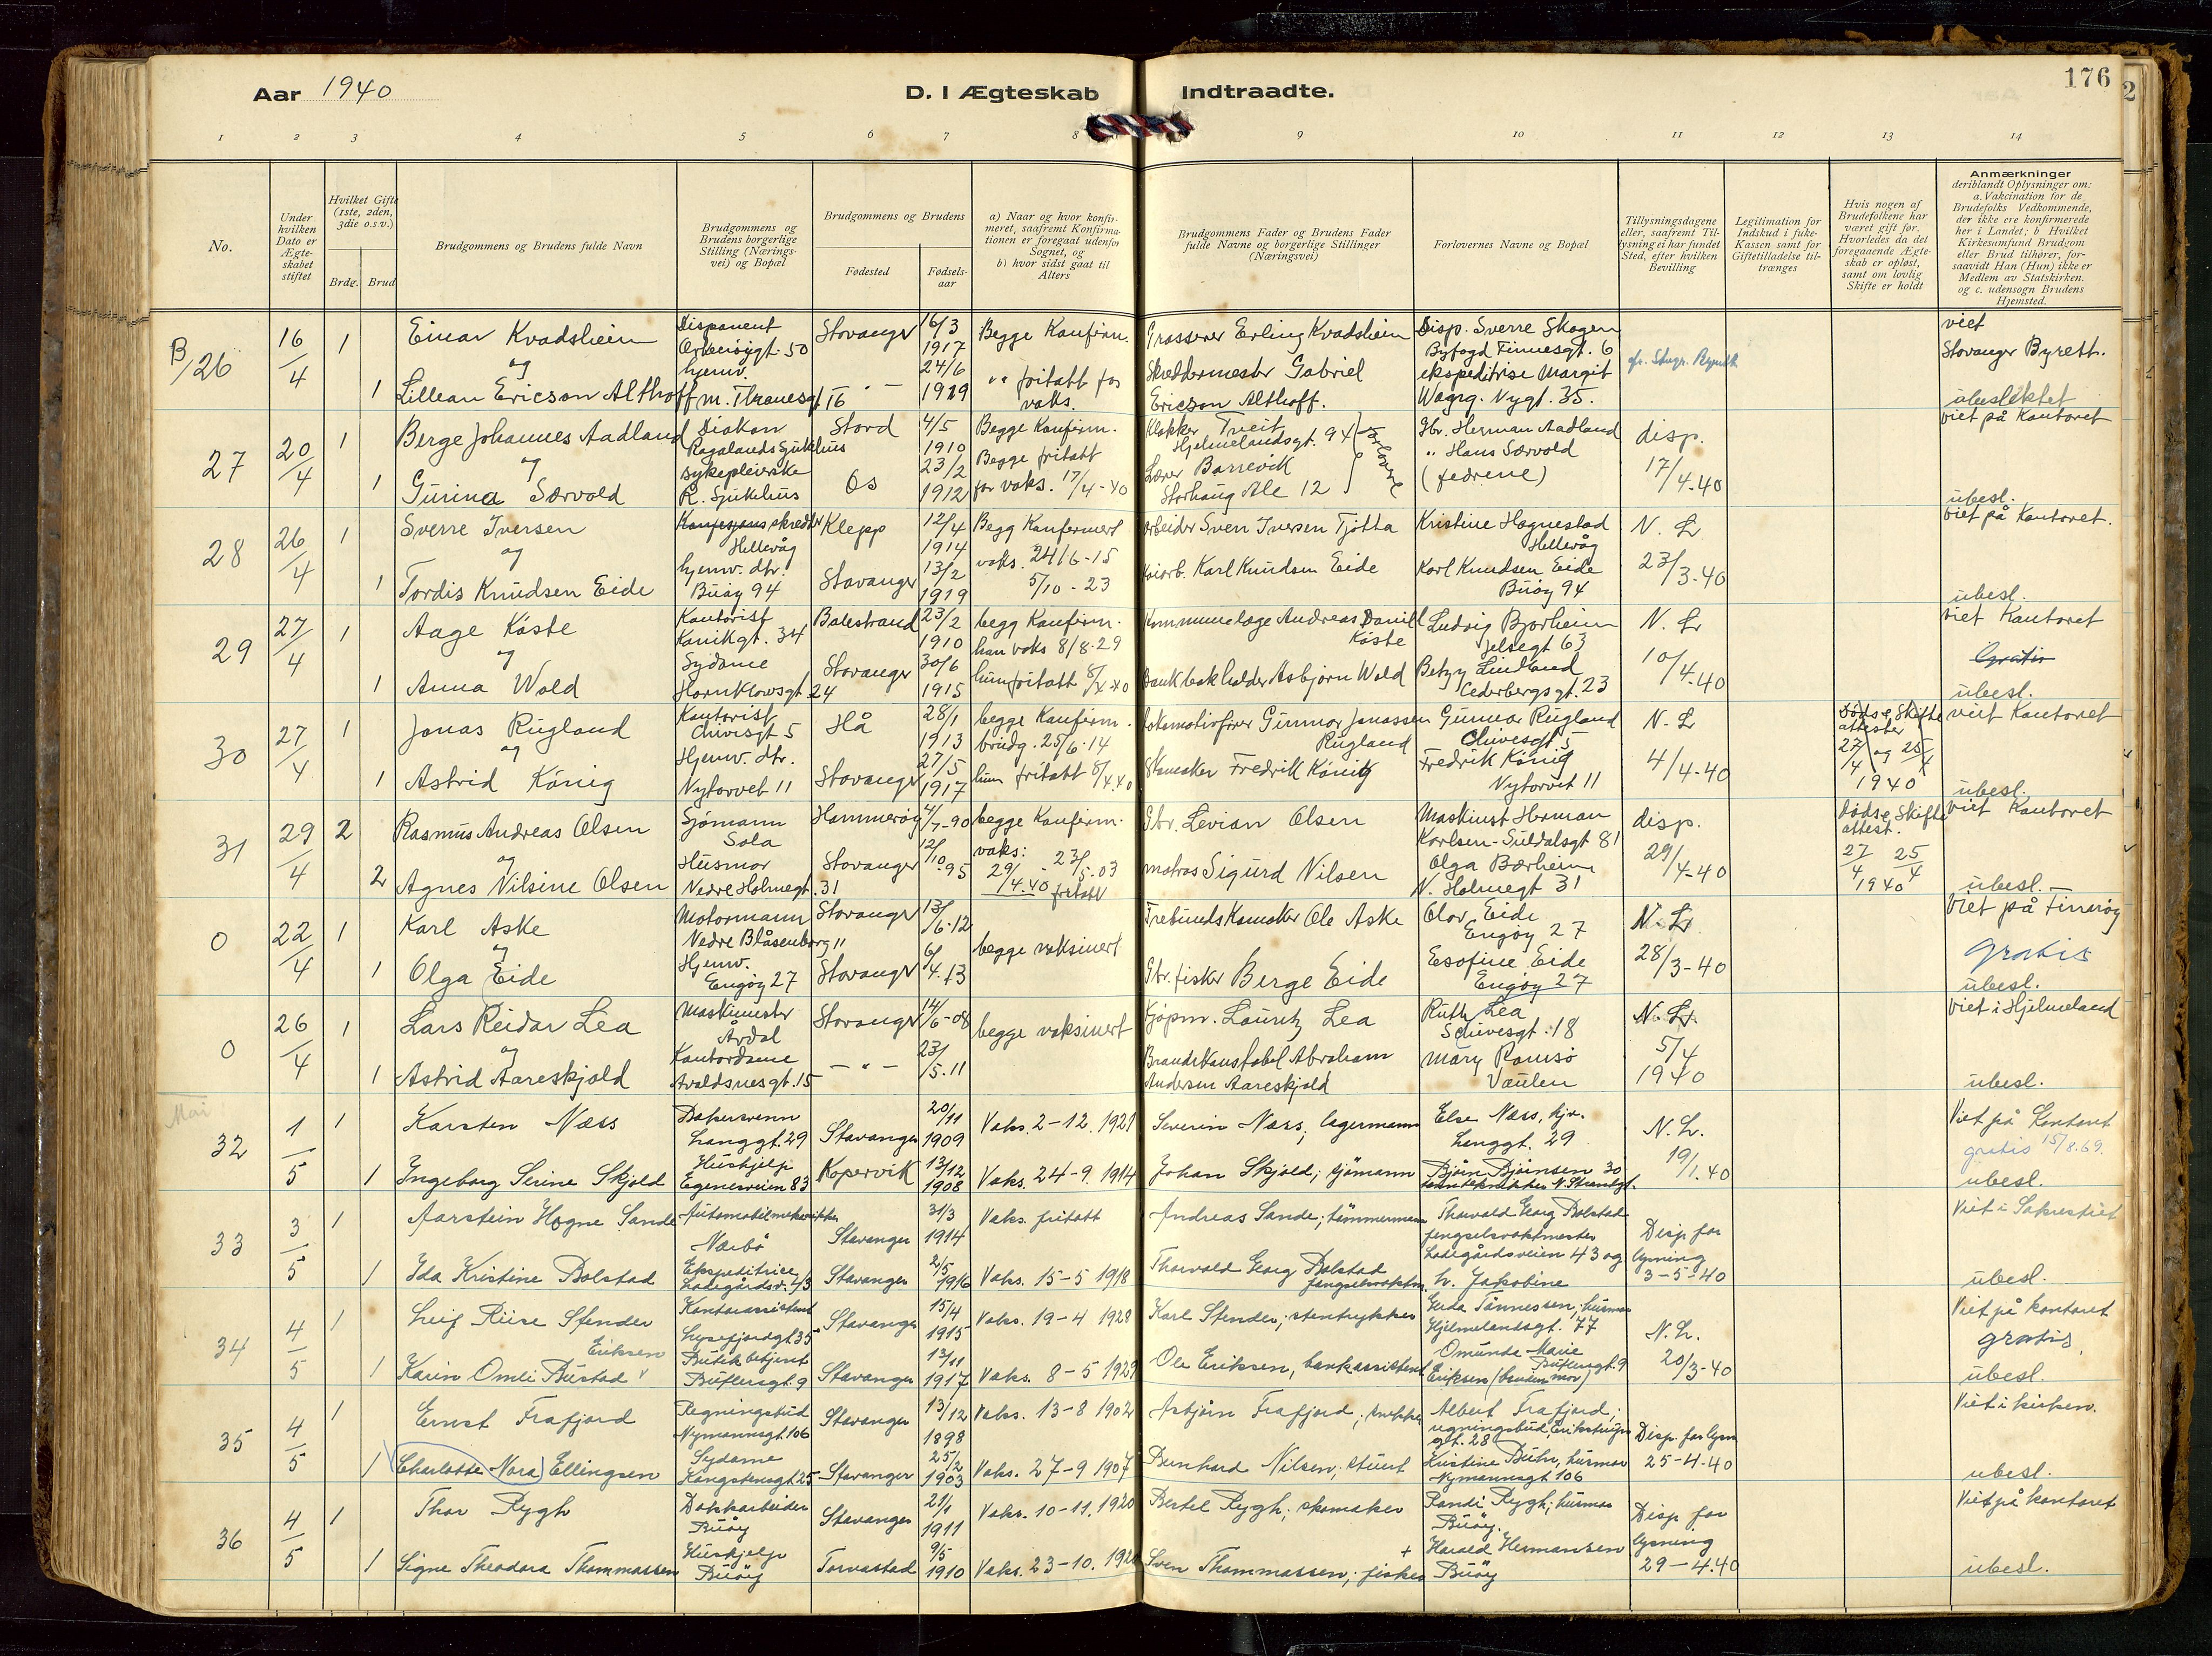 Aar 1940
D. I Ægteskab Indtraadte.
176
1 2 3 4 5 6 7 8 9 10 11 12 13 14
No.
Under hvilken Dato er Ægteskabet stiftet
Hvilket Gifte (1ste, 2den, 3die o.s.v.)
Brdg. Brud
Brudgommens og Brudens fulde Navn
Brudgommens og Brudens borgerlige Stilling (Næringsvei) og Bopæl
Brudgommens og Brudens
Fødested
Fødselsaar
a) Naar og hvor konfirmeret, saafremt Konfirmationen er foregaat udenfor Sognet, og
b) hvor sidst gaat til Alters
Brudgommens Fader og Brudens Fader fulde Navne og borgerlige Stillinger (Næringsvei)
Forlovernes Navne og Bopæl
Tillysningsdagene eller, saafremt Tillysning ei har fundet Sted, efter hvilken Bevilling
Legitimation for Indskud i Enke-Kassen samt for Giftetilladelse tiltrænges
Hvis nogen af Brudefolkene har været gift før. Hvorledes da det foregaaende Ægteskab er opløst, samt om lovlig Skifte er holdt
Anmærkninger
deriblandt Oplysninger om: a. Vakcination for de Brudefolks Vedkommende, der ikke ere konfirmerede her i Landet; b Hvilket Kirkesamfund Brudgom eller Brud tilhører, forsaavidt Han (Hun) ikke er Medlem av Statskirken. og c. udensogn Brudens Hjemsted.
B/26 16/4 1 Einar Kvadsheim Disponent 50 Stavanger 16/3 1917 Begge Konfirm. Grosserer Erling Kvadsheim Disp. Sverre Skogen Byfogd Finnesgt. 6 viet Stavanger Byrett.
og
1 Lillean Ericson Althoff hjemv. m. Thranesgt 16 - " - 24/6 1919 " fritatt for vaks. Skreddermester Gabriel Ericson Althoff. ekspeditrise Margit Nygt. 35. ubeslektet
27 20/4 1 Berge Johannes Aadland Diakon Rogalands Sjukehus Stord 4/5 1910 Begge Konfirm. Klokker Tveit Hjelmelandsgt. 94 Forlovere Gbr. Herman Aadland disp. viet på Kontoret
og
1 Gurina Sørvold sykepleierske R. Sjukehus Os 23/2 1912 Begge fritatt for vaks. 17/4-40 Lærer Barrevik Storhaug Ale 12 " Hans Sørvold (fedrene) 17/4-40 ubesl.
28 26/4 1 Sverre Iversen skredder Hellevåg Klepp 12/4 1914 Begg Konfirmert arbeider Sven Iversen Tjøtta Kristine Hognestad Hellevåg N. L viet på Kontoret.
og
1 Tordis Knudsen Eide hjemv. dtr. Buøy 94 Stavanger 13/2 1919 vaks. 24/6-15 5/10-23 Karl Knudsen Eide Karl Knudsen Eide Buøy 94 23/3-40 ubesl.
29 27/4 1 Aage Kåste Kontorist Kanikgt. 34 Balestrand 23/2 1910 begg Konfirm. han vaks 8/8-29 Kommunelæge Andreas Daniel Kåste Ludvig Bjorheim Jelsegt 63 N. L. viet Kontoret
og
1 Anna Wold Sydame Hornklovsgt. 24 Stavanger 30/6 1915 hun fritatt 8/4-40 Bankbokholder Asbjørn Wold Betzy Lindland Cederbergsgt. 23 10/4-40 Gratis ubesl.
30 27/4 1 Jonas Rugland Kontorist Olivesgt 5 Hå 28/1 1913 begge Konfirm. brudg. 25/6-14 Lokomotivfører Gunnar Jonassen Rugland Gunnar Rugland Olivesgt 5 N. L Døds & Skifte attester 27/4 og 25/4 1940 viet Kontoret
og
1 Astrid König Hjemv. dtr. Nytorvet 11 Stavanger 27/5 1917 hun fritatt 8/4.40 Skomaker Fredrik König Fredrik König Nytorvet 11 4/4-40 ubesl.
31 29/4 2 Rasmus Andreas Olsen Sjømann Sola Hammerøy 4/7-90 begge Konfirm. Gbr. Levian Olsen Maskinist Herman Karlsen-Suldalsgt 81 disp. Døds & Skifte attest. 27/4 25/4 1940 viet Kontoret
og
2 Agnes Nilsine Olsen Husmor Nedre Holmegt. 31 Stavanger 12/10.95 vaks: 23/5-03 29/4.40 fritatt matros Sigurd Nilsen Olga Bærheim N. Holmegt 31 29/4-40 ubesl.
0 22/4 1 Karl Aske Motormann Nedre Blåsenborg 11 Stavanger 13/6-12 begge vaksinert Ole Aske Olav Eide Engøy 27 N. L. Viet på Finnøy
og
1 Olga Eide Hjemv. Engøy 27 Stavanger 6/4.13 Gbr. fisker Berge Eide Esofine Eide Engøy 27 28/3-40 gratis ubesl.
0 26/4 1 Lars Reidar Lea Maskinmester Årdal Stavanger 14/6-08 begge vaksinert Kjøpm. Lauritz Lea Ruth Lea 18 N. L. viet i Hjelmeland
og
1 Astrid Aareskjold Kontordame Avaldsnesgt. 15 - " - 23/5.11 Brandkonstabel Abraham Andersen Aareskjold Mary Ramsø Vaulen 5/4 1940 ubesl.
Mai
32 1/5 1 Karsten Næss Bakersvenn Langgt. 29 Stavanger 20/11 1909 Vaks. 2-12. 1921 Severin Næss, lagermann Else Næss, hjv. Langgt. 29 N. L. Viet på Kontoret
1 Ingeborg Serine Skjold Hushjelp Egenesveien 83 Kopervik 13/12 1908 Vaks. 24-9. 1914 Johan Skjold; sjömann Björn Björnsen 30 N. Strandgt. 19/1.40 gratis 15/8.69. ubesl.
33 3/5 1 Aarstein Hogne Sande Automobilmekaniker Nærbö Stavanger 31/3 1914 Vaks. fritatt Andreas Sande; tömmermann Thorvald Georg Bolstad fengselsvaktmester Ladegårdsveien 43 og Disp for lysning Viet i Sakrestiet
1 Ida Kristine Bolstad Ekspeditrice Ladegårdsv. 43 Stavanger 2/5 1916 Vaks. 15-5 1918 Thorvald Georg Bolstad h. Jakobine 3-5-40 ubesl.
34 4/5 1 Leif Riise Stender Kontorassistent Lysefjordgt. 35 Stavanger 15/4 1915 Vaks. 19-4 1928 Karl Stender; stentrykker Gerda Tönnessen; husmor Hjelmelandsgt. 77 N. L. Viet på kontoret
1 Karin Omli Bustad Eriksen Butikbetjent Buflersgt. 9 Stavanger 13/11 1917 Vaks. 8-5 1929 Ole Eriksen, bankassistent Omunde Marie Eriksen (brudens mor) Buflersgt. 9 20/3-40 gratis ubesl.
35 4/5 1 Ernst Frafjord Regningsbud Nymannsgt. 106 Stavanger 13/12 1898 Vaks. 13-8 1902 Asbjörn Frafjord; Albert Frafjord; regningsbud, gt. 28 Disp. for lysn Viet i kirken.
1 Charlotte Nora Ellingsen Sydame Kongstensgt. 25 Stavanger 25/2 1903 Vaks. 27-9 1907 Bernhard Nilsen; stuert Kristine Buhr, husmor Nymannsgt 106 25-4-40 ubesl.
36 4/5 1 Thor Rygh Dokkarbeider Buöy Stavanger 21/1 1911 Vaks. 10-11. 1920 Bertel Rygh; skomaker Randi Rygh; husmor Buöy. Disp for lysning Viet på kontoret
1 Signe Theodora Thommassen Hushjelp Buöy Torvastad 9/5 1910 Vaks. 23-10. Sven Thommassen; fisker + Harald Hermansen Buöy 29-4.40 ubesl.